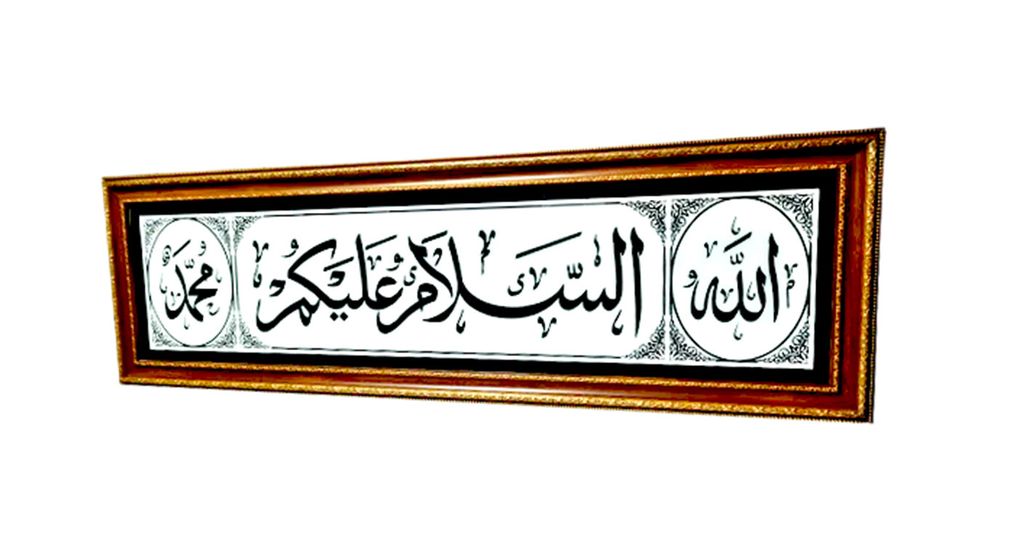 الله
السَّلَامُ عَلَيْكُمْ
مُحَمَّد